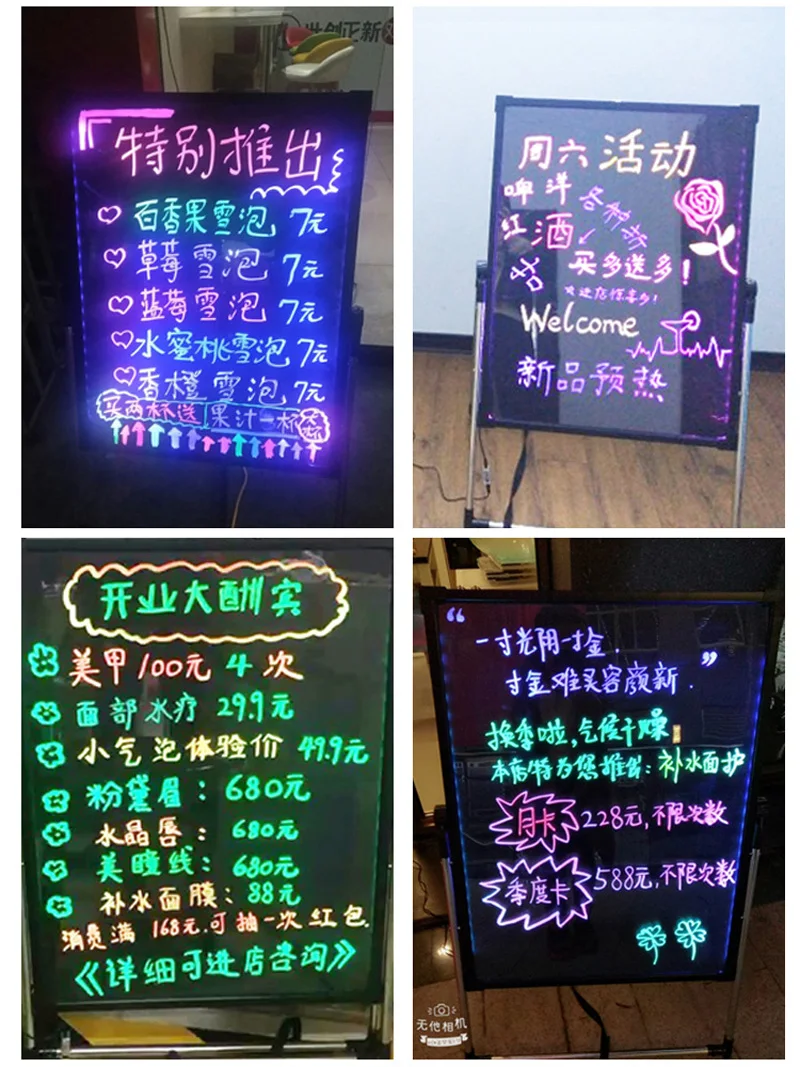 世创正新
特别推出
百香果雪泡 7元
草莓雪泡 7元
蓝莓雪泡 7元
水蜜桃雪泡 7元
香橙雪泡 7元
买两杯送果汁一杯
周六活动
啤 洋
红 酒
各种
买多送多!
Welcome
新品预热
开业大酬宾
美甲100元 4次
面部水疗 29.9元
小气泡体验价 49.9元
粉黛眉: 680元
水晶唇: 680元
美瞳线: 680元
补水面膜: 88元
消费满 168元.可抽一次红包.
《详细可进店咨询》
“一寸光阴一寸金.
寸金难买容颜新.”
换季啦,气候干燥
本店特为您推出:补水面护
月卡 228元,不限次数
季度卡 588元,不限次数
无他相机